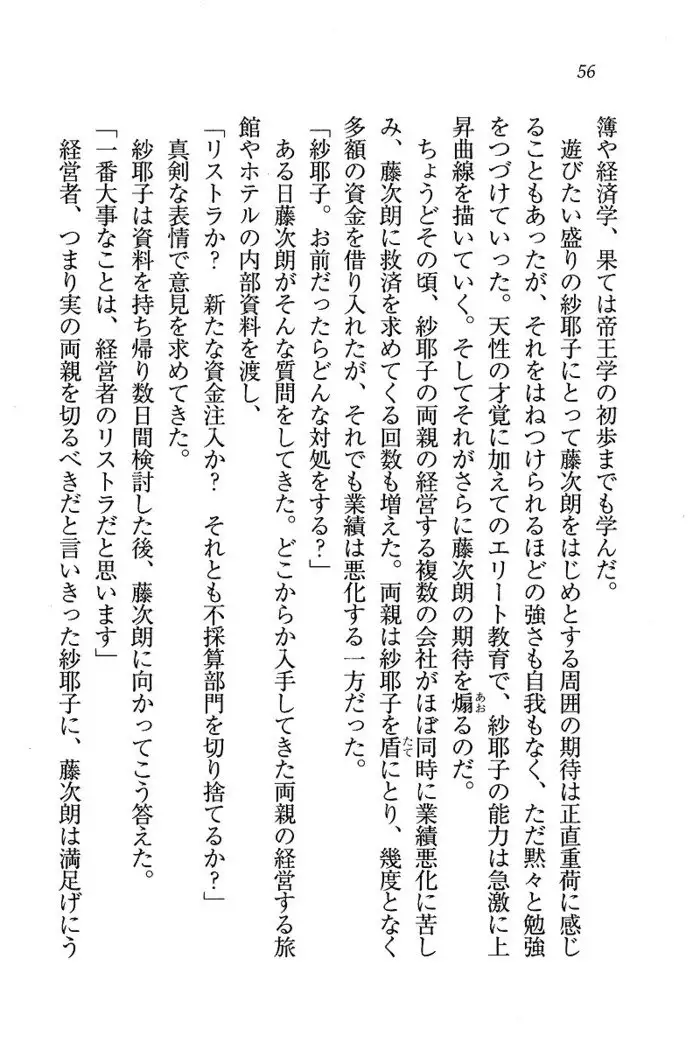 56
簿や経済学、果ては帝王学の初歩までも学んだ。
　遊びたい盛りの紗耶子にとって藤次朗をはじめとする周囲の期待は正直重荷に感じ
ることもあったが、それをはねつけられるほどの強さも自我もなく、ただ黙々と勉強
をつづけていった。天性の才覚に加えてのエリート教育で、紗耶子の能力は急激に上
昇曲線を描いていく。そしてそれがさらに藤次朗の期待を煽（あお）るのだ。
　ちょうどその頃、紗耶子の両親の経営する複数の会社がほぼ同時に業績悪化に苦し
み、藤次朗に救済を求めてくる回数も増えた。両親は紗耶子を盾（たて）にとり、幾度となく
多額の資金を借り入れたが、それでも業績は悪化する一方だった。
「紗耶子。お前だったらどんな対処をする？」
　ある日藤次朗がそんな質問をしてきた。どこからか入手してきた両親の経営する旅
館やホテルの内部資料を渡し、
「リストラか？　新たな資金注入か？　それとも不採算部門を切り捨てるか？」
　真剣な表情で意見を求めてきた。
　紗耶子は資料を持ち帰り数日間検討した後、藤次朗に向かってこう答えた。
「一番大事なことは、経営者のリストラだと思います」
　経営者、つまり実の両親を切るべきだと言いきった紗耶子に、藤次朗は満足げにう